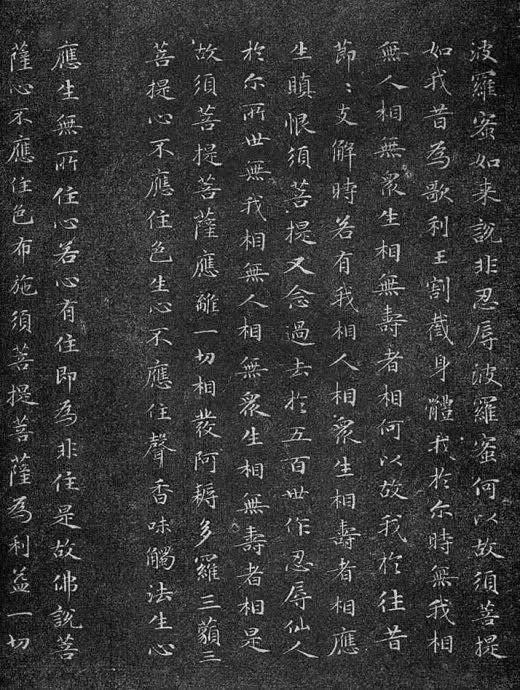 波羅蜜如来說非忍辱波羅蜜何以故須菩提
如我昔為歌利王割截身體我於尔時無我相
無人相無眾生相無壽者相何以故我於往昔
節〻支解時若有我相人相眾生相壽者相應
生瞋恨須菩提又念過去於五百世作忍辱仙人
於尔所世無我相無人相無眾生相無壽者相是
故須菩提菩薩應離一切相發阿耨多羅三藐三
菩提心不應住色生心不應住聲香味觸法生心
應生無所住心若心有住即為非住是故佛說菩
薩心不應住色布施須菩提菩薩為利益一切